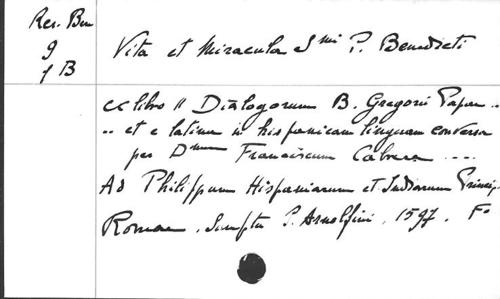 Res. Ben
9
f B
Vita et miracula Smi P. Benedicti
ex libro II Dialogorum B. Gregorii Papae ..
.. et e latina in hispanicam linguam conversa
per Dnum Franciscum Cabrera ....
Ad Philippum Hispaniarum et Indiarum Princip.
Romae, Sumptu P. Arnolfini, 1597. Fo